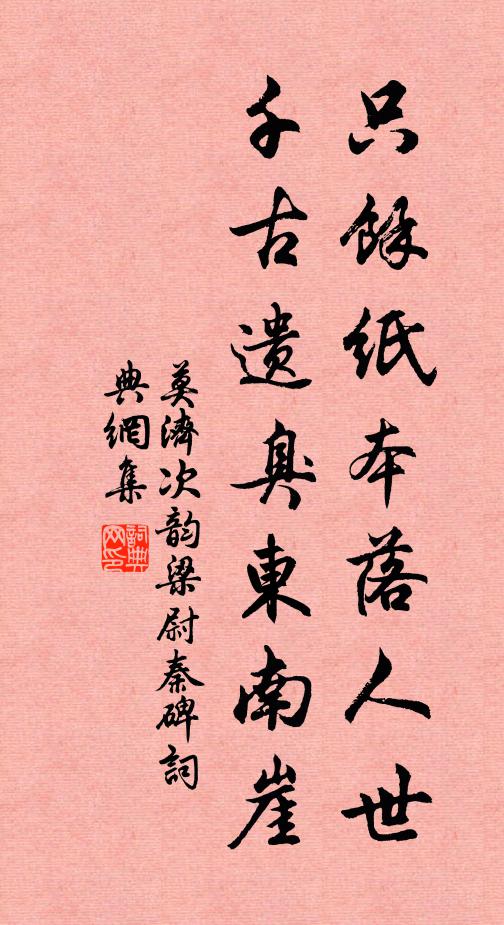 只餘紙本落人世
千古遺臭東南崖
莫濟次韵梁尉秦碑詞
典網集
詞典網印